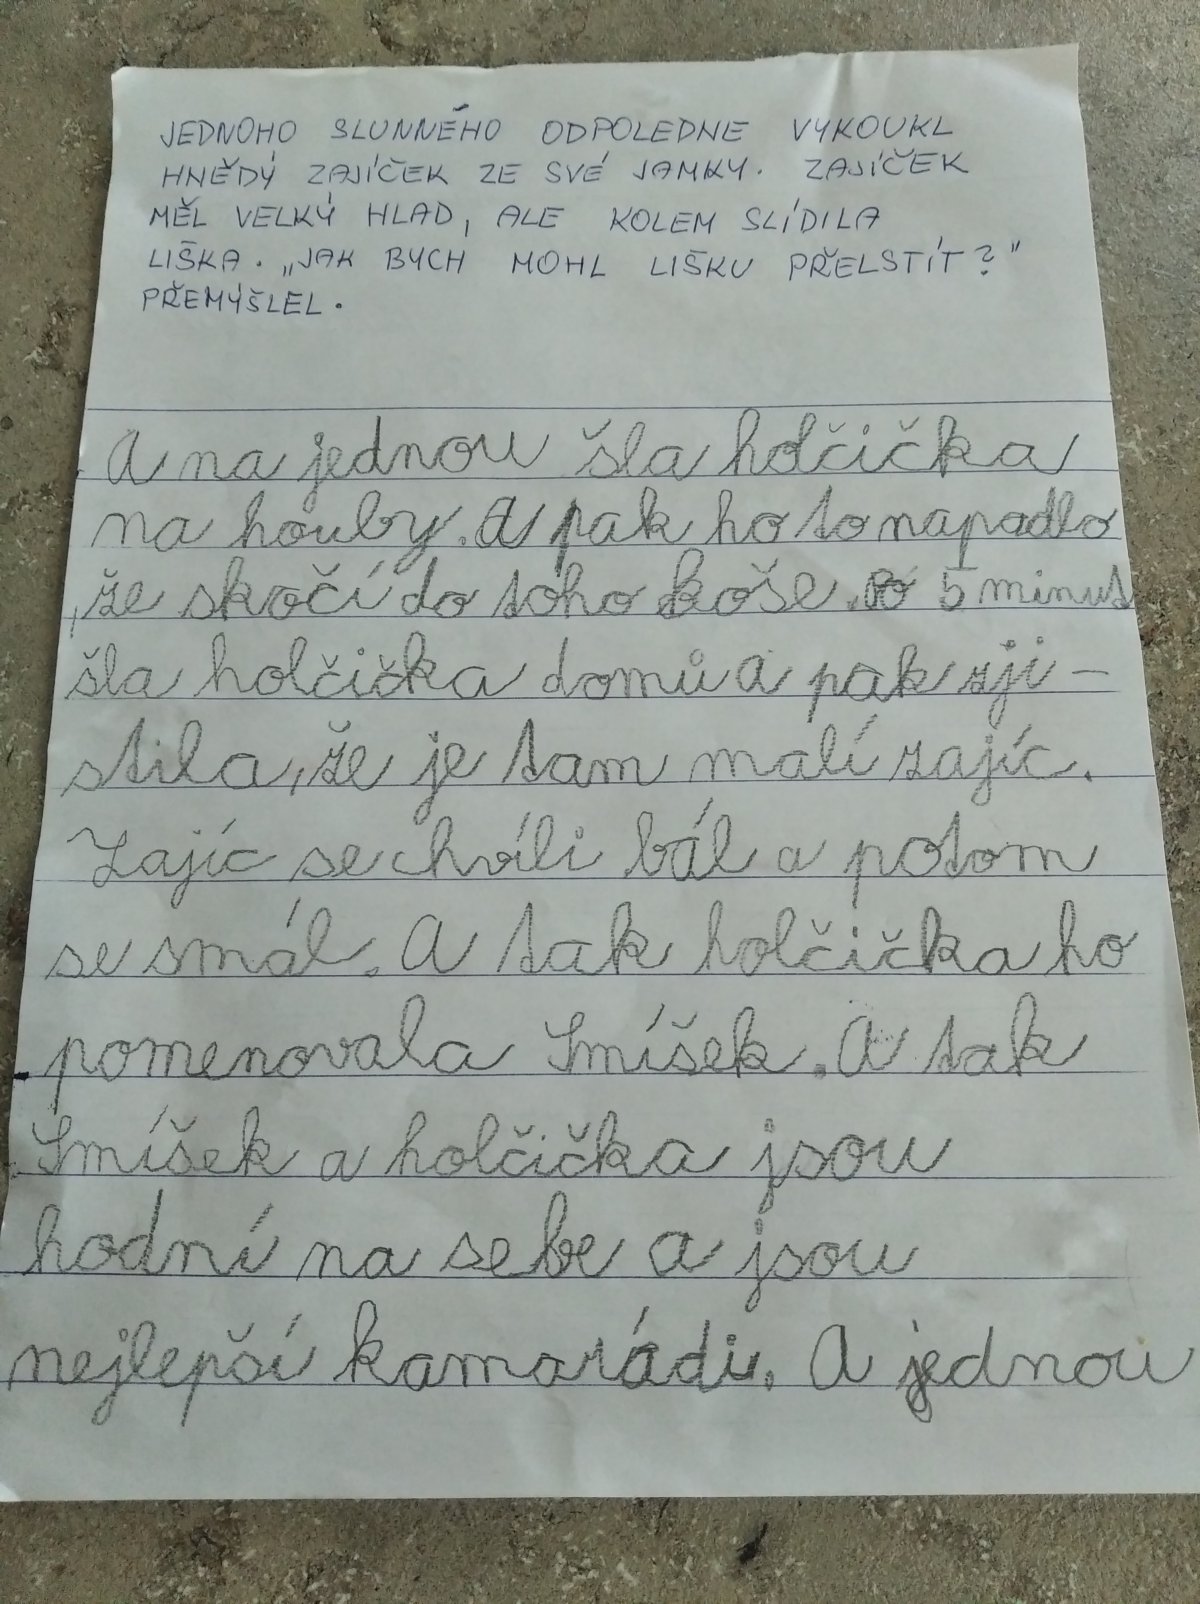 JEDNOHO SLUNNÉHO ODPOLEDNE VYKOUKL
HNĚDÝ ZAJÍČEK ZE SVÉ JAMKY. ZAJÍČEK
MĚL VELKÝ HLAD, ALE KOLEM SLÍDILA
LIŠKA. „JAK BYCH MOHL LIŠKU PŘELSTÍT?"
PŘEMÝŠLEL.
A na jednou šla holčička
na houby. A pak ho to napadlo
, že skočí do toho koše. Po 5 minut
šla holčička domů a pak zji-
stila, že je tam malí zajíc.
Zajíc se chvíli bál a potom
se smál. A tak holčička ho
pomenovala Smíšek. A tak
Smíšek a holčička jsou
hodní na sebe a jsou
nejlepší kamarádi. A jednou